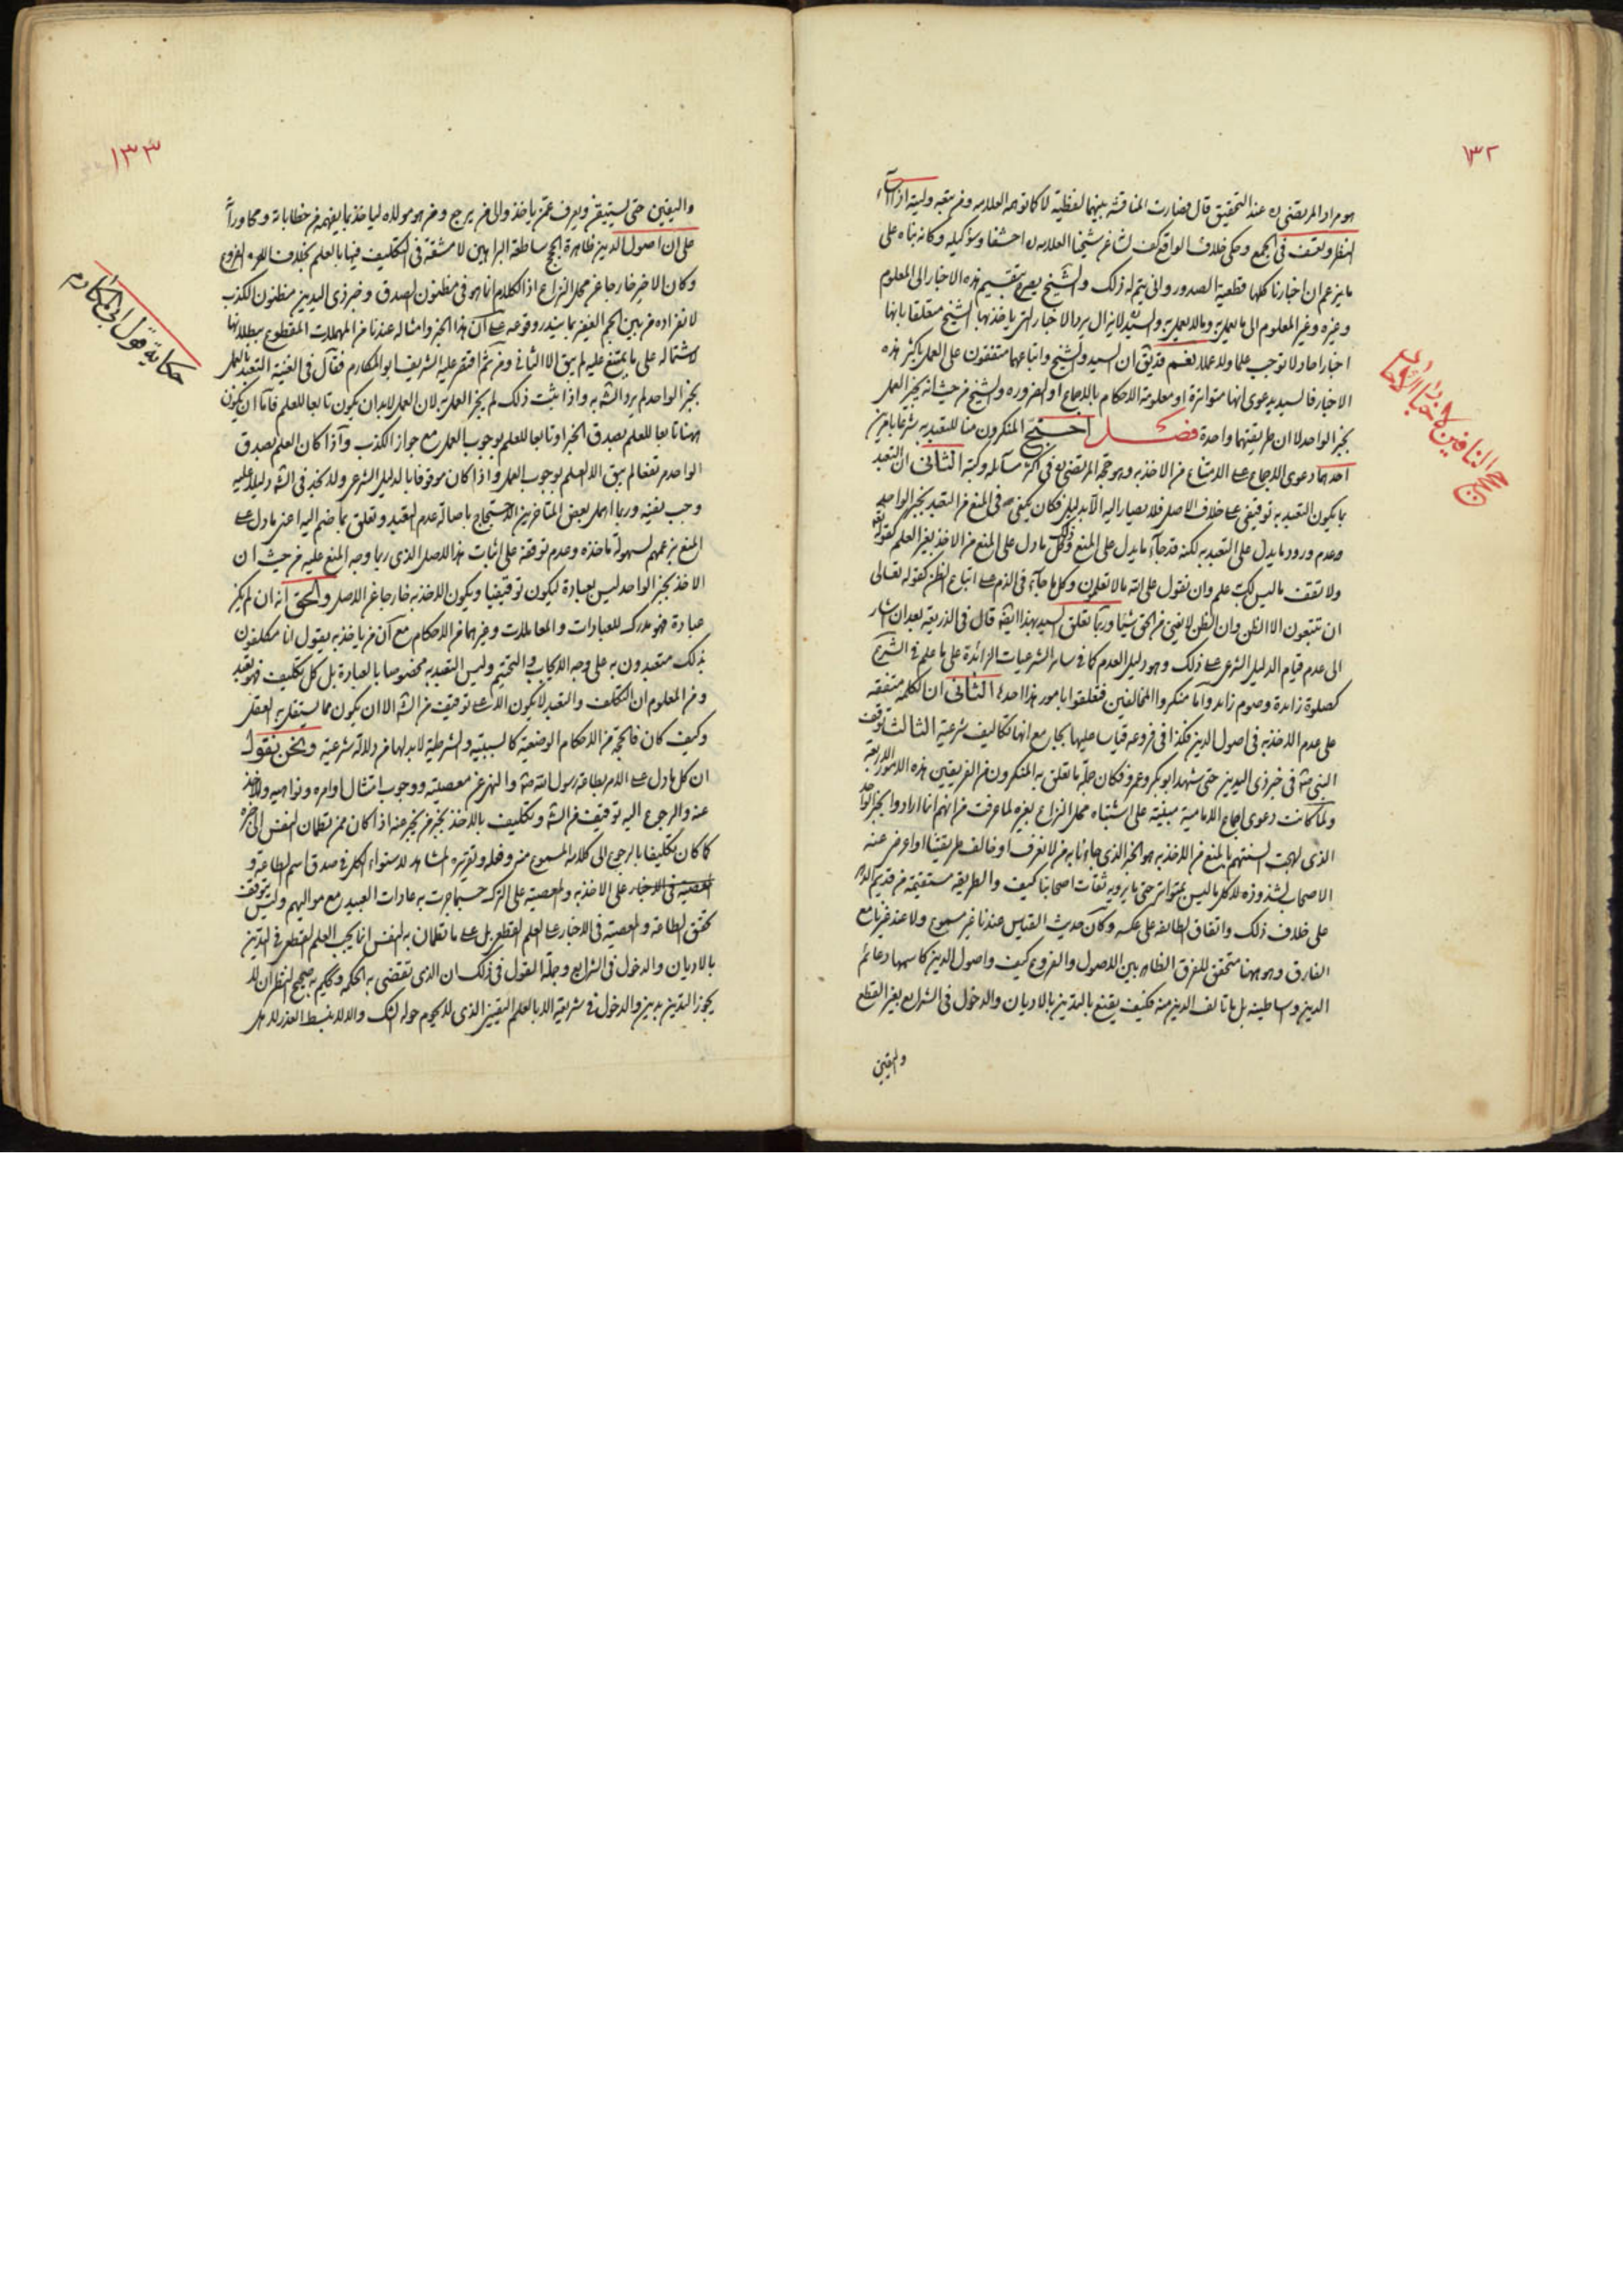 ١٣٢
هو مراد المرتضى ره عند التحقيق قال فصارت المناقشة بينهما لفظية لا كما توهمه العلامه ومن تبعه وليته اذ اساء
النظر وتعسف فى الجمع وحكى خلاف الواقع كف لشاغر شيخنا العلامه ره احشفا وسوء كيله وكانه بناه على
ما يزعم ان اخبارنا كلها قطعية الصدور وانى يتم له ذلك والشيخ يصرح بتقسيم هذه الاخبار الى المعلوم
وغيره وغير المعلوم الى ما يعمل به وما لا يعمل به والسيد لا يزال يرد الاخبار التى ياخذ بها الشيخ متعلقا بانها
اخبار احاد لا توجب علما ولا عملا نعم قد يق ان السيد والشيخ واتباعهما متفقون على العمل باكثر هذه
الاخبار فالسيد يدعوى انها متواترة او معلومة الاحكام بالاجماع او الضروره والشيخ من حيث انه يجيز العمل
بخبر الواحد لا ان طريقتهما واحدة فصل احتج المنكرون منا للتعبد به شرعا بامرين
احدهما دعوى الاجماع على الامتناع من الاخذ به وهو حجة المرتضى ره فى اكثر مسائله وكتبه الثانى ان التعبد
بما يكون التعبد به توقيفى على خلاف الاصل فلا يصار اليه الا بدليل فكان يكفى صه فى المنع من التعبد بخبر الواحد
وعدم ورود ما يدل على التعبد به لكنه قد جاء ما يدل على المنع وذلك كل ما دل على المنع من الاخذ بغير العلم كقوله تعه
ولا تقف ما ليس لك به علم وان تقول على الله ما لا تعلمون وكل ما جاء فى الذم على اتباع الظن كقوله تعالى
ان تتبعون الا الظن وان الظن لا يغنى من الحق شيئا وربما تعلق السيد بهذا ايضه قال فى الذريعه بعد ان اشار
الى عدم قيام الدليل الشرعى على ذلك وهو دليل العدم كما فى سائر الشرعيات الزائدة على ما علم فى الشرع
كصلوة زائدة وصوم زائد واما منكروا المخالفين فتعلقوا بامور هذا احدها الثانى ان الكلمه متفقه
على عدم الاخذ به فى اصول الدين فكذا فى فروعه قياسا عليها بجامع انها تكاليف شرعية الثالث توقف
النبى صه فى خبر ذى اليدين حتى شهد ابو بكر وعمر فكان جلة ما تعلق به المنكرون من الفريقين هذه الامور الاربعة
ولما كانت دعوى اجماع الامامية مبنية على اشتباه محل النزاع بغيره لما عرفت من انهم انما ارادوا بخبر الواحد
الذى لهجت السنتهم بالمنع من الاخذ به هو الخبر الذى جاءنا به من لا نعرف او خالف طريقتنا او اعرض عنه
الاصحاب لشذوذه لا كل ما ليس بمتواتر حتى ما يرويه ثقات اصحابنا كيف والطريقه مستقيمة من قديم الدهر
على خلاف ذلك واتفاق الطائفه على عكسه وكان حديث القياس عندنا غير مسموع ولا عند غيرنا مع
الفارق وهو ههنا متحقق للفرق الظاهر بين الاصول والفروع كيف واصول الدين كاسمها دعائم
الدين واساطينه بل ما تالف الدين منه فكيف يقنع بالتدين بالاديان والدخول فى الشرايع بغير القطع
واليقين
حجج النافين
١٣٣
واليقين حتى يستيقن ويعرف عمن ياخذ والى من يرجع ومن هو مولاه لياخذ بما يفهمه من خطاباته ومحاوراته
على ان اصول الدين ظاهرة الحجج ساطعة البراهين لا مشقة فى التكليف فيها بالعلم بخلاف الفروع
وكان الاخير خارجا عن محل النزاع اذ الكلام انما هو فى مظنون الصدق وخبر ذى اليدين مظنون الكذب
لانفراده من بين الجم الغفير بما يندر وقوعه على ان هذا الخبر وامثاله عندنا من المهملات المقطوع ببطلانها
لاشتماله على ما يمتنع عليه لم يبق الا الثانى ومن ثم اقتصر عليه الشريف ابو المكارم فقال فى الغنية التعبد بالعمل
بخبر الواحد لم يرد الشه به واذا ثبت ذلك لم يجز العمل به لان العمل لابد ان يكون تابعا للعلم فاما ان يكون
ههنا تابعا للعلم بصدق الخبر او تابعا للعلم بوجوب العمل مع جواز الكذب واذا كان العلم بصدق
الواحد مرتفعا لم يبق الا العلم بوجوب العمل واذا كان موقوفا بالدليل الشرعى ولا نجد فى الشه دليلا عليه
وجب نفيه وربما اهمل بعض المتاخرين الاحتجاج باصالة عدم التعبد وتعلق بما ضم اليه اعنى ما دل على
المنع بزعمهم لسهولة ماخذه وعدم توقفه على اثبات هذا الاصل الذى ربما وجه المنع عليه من حيث ان
الاخذ بخبر الواحد ليس بعبادة ليكون توقيفيا ويكون الاخذ به خارجا عن الاصل والحق انه ان لم يكن
عبادة فهو مدرك للعبادات والمعاملات وغيرهما من الاحكام مع ان من ياخذ به يقول انا مكلفون
بذلك متعبدون به على وجه الايجاب والتحتيم وليس التعبد به مخصوصا بالعبادة بل كل تكليف فهو تعبد
ومن المعلوم ان التكلف والتعبد لا يكون الا عن توقيف من الشه الا ان يكون مما يستقل به العقل
وكيف كان فالحجة من الاحكام الوضعية كالسببيه والشرطية لابد لها من دلالة شرعية ونحن نقول
ان كل ما دل على الامر بطاعة رسول الله صه والنهى عن معصيته ووجوب امتثال اوامره ونواهيه والاخذ
عنه والرجوع اليه توقيف من الشه وتكليف بالاخذ بخبر من يخبر عنه اذا كان ممن تطمئن النفس الى خبره
كما كان تكليفا بالرجوع الى كلامه المسموع منه وفعله وتقريره المشاهد لاستواء الكل فى صدق اسم الطاعة و
المعصية فى الاخبار على الاخذ به والمعصية على الترك حسبما جرت به عادات العبيد مع مواليهم وليس يتوقف
تحقق الطاعة والمعصية فى الاخبار على العلم القطعى بل على ما تطمان به النفس انما يجب العلم القطعى فى التدين
بالاديان والدخول فى الشرايع وجلة القول فى ذلك ان الذى تقضى به الحكمه ويحكم به صحيح النظر ان لا
يجوز التدين بدين والدخول فى شريعة الا بالعلم اليقينى الذى لا يحوم حوله الشك والا لانبسط العذر لاهل
حكاية قول ابى المكارم